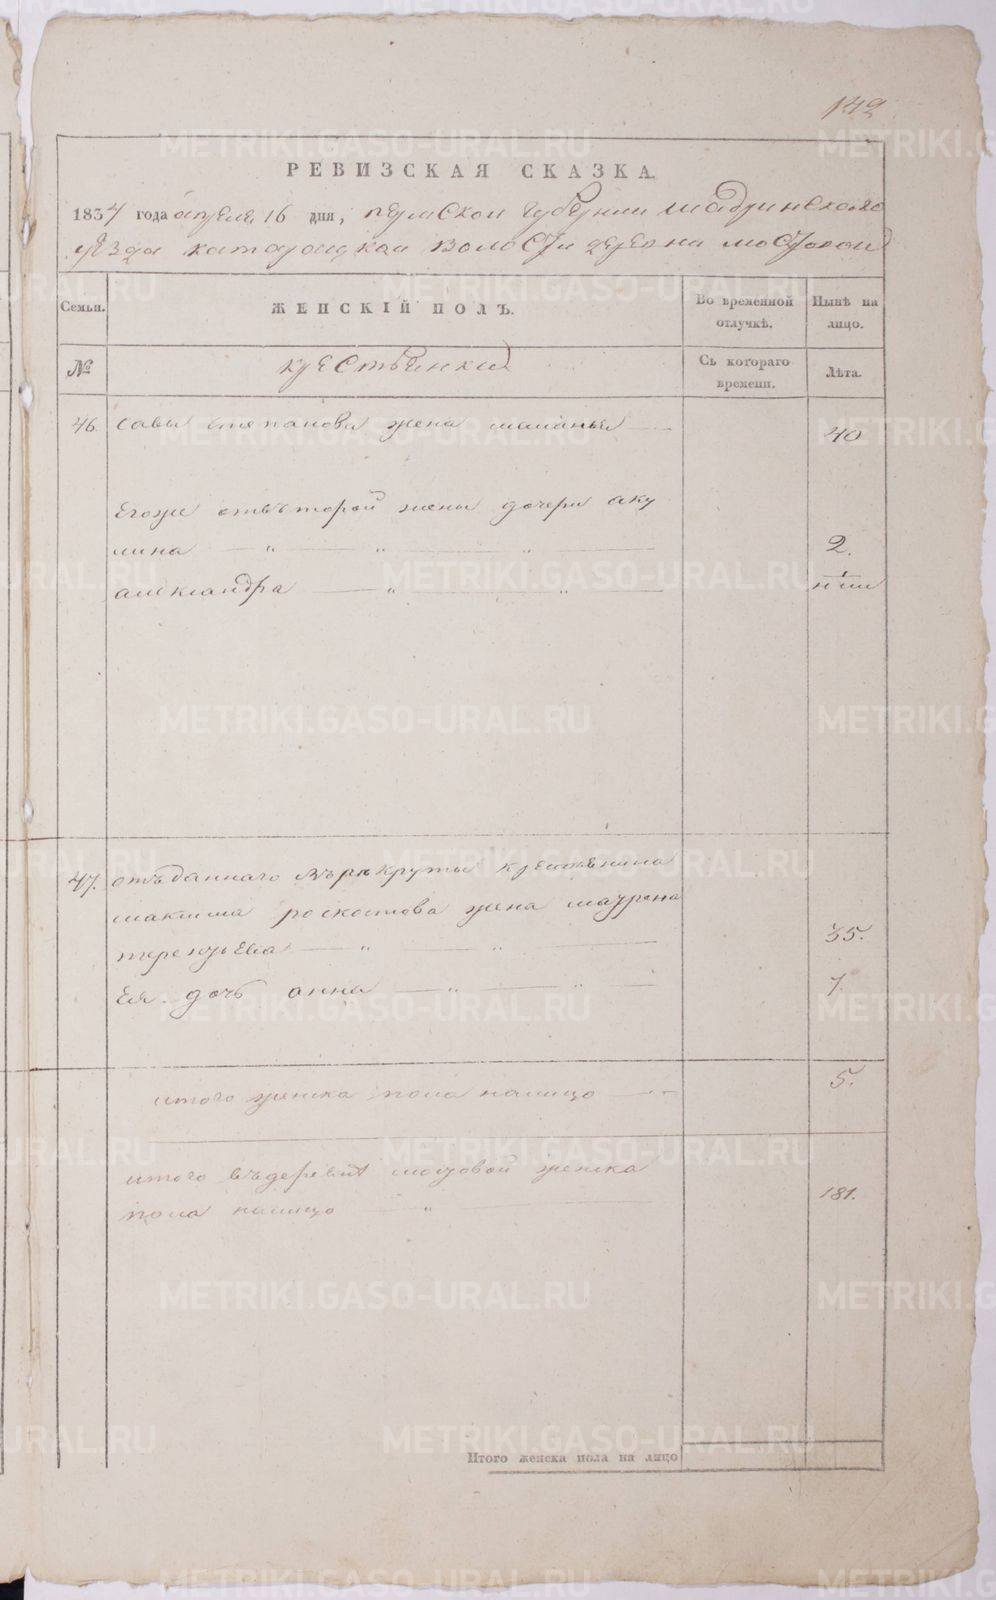 142
РЕВИЗСКАЯ СКАЗКА.
1834 года апреля 16 дня, пермской губернии шадринского
уезда катайской волости деревни мостовой
Семьи.
ЖЕНСКІЙ ПОЛЪ.
Во временной отлучкѣ.
Нынѣ на лицо.
№
крестьянки
Съ котораго времени.
Лѣта.
46. савы степанова жена маланья 40
Егоже отвъторой жены дочери аку
лина 2.
александра
47. отъданнаго въ рекруты крестьянина
максима жена
35.
Ея дочь анна 7.
итого женска пола налицо 5.
итого въдеревне мостовой женска
пола налицо 181.
Итого женска пола на лицо
METRIKI.GASO-URAL.RU